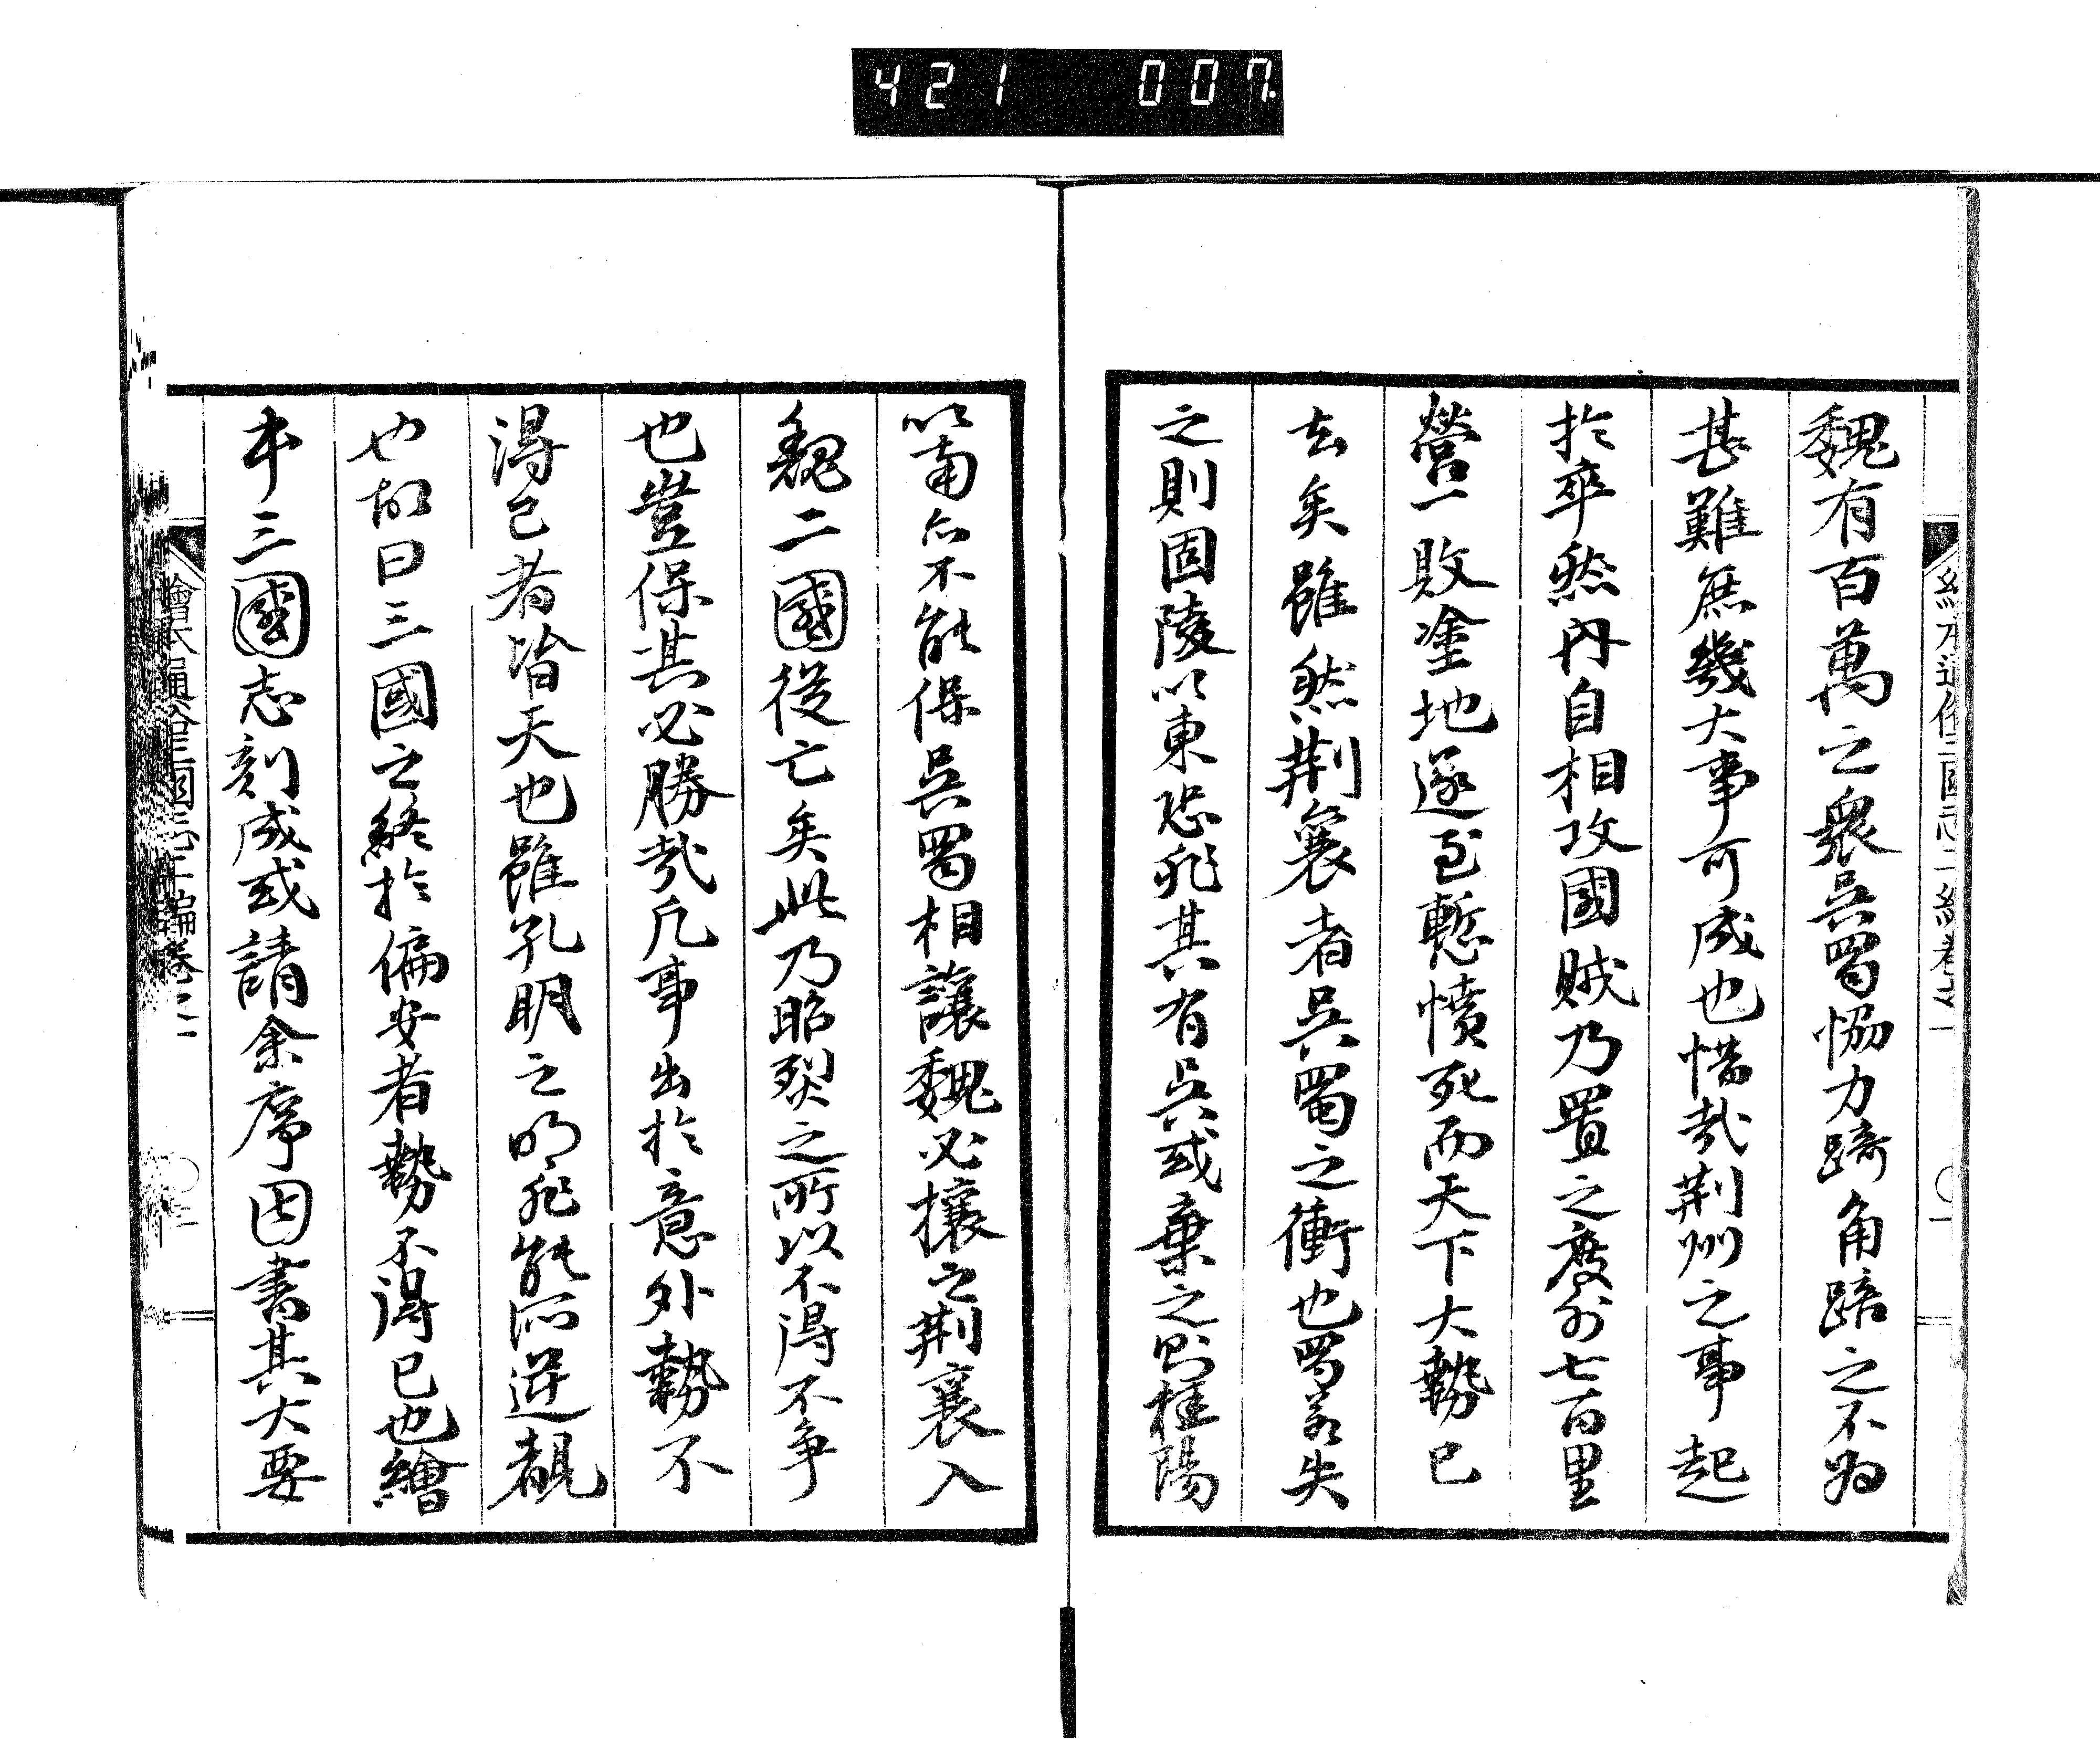 421 007.
魏有百萬之衆呉蜀恊力踦角踣之不為
甚難庶幾大事可成也惜哉荆州之事起
於卒然内自相攻國賊乃置之度外七百里
營一敗塗地遂至慙憤死而天下大勢已
去矣雖然荆襄者呉蜀之衝也蜀若失
之則固陵以東恐非其有呉或棄之則桂陽
以南亦不能保呉蜀相讓魏必攘之荆襄入
魏二國從亡矣此乃昭烈之所以不得不争
也豈保其必勝哉凡事出於意外勢不
得已者皆天也雖孔明之明非能所逆覩
也故曰三國之終於偏安者勢不得已也繪
本三國志刻成或請余序因書其大要
繪本通俗三國志二編卷之一